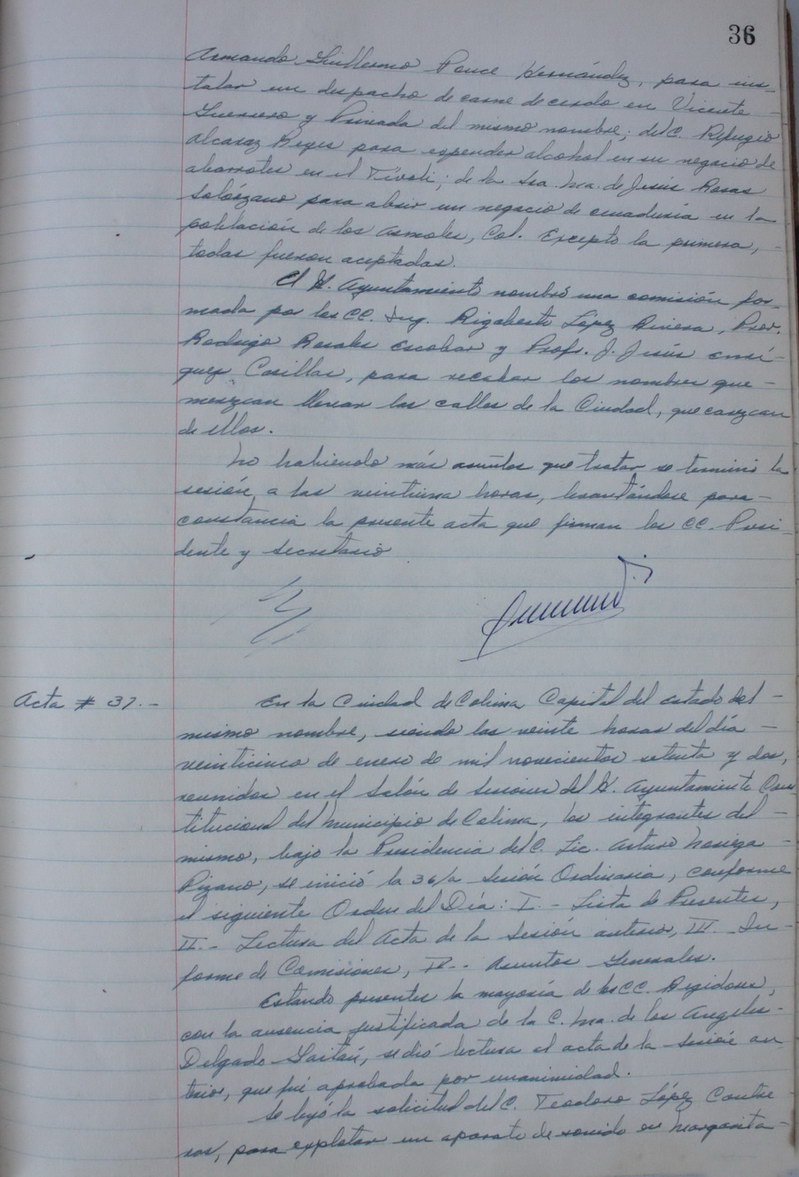 36
Armando Guillermo Ponce Hernández, para ins-
talar un despacho de carne de cerdo en Vicente -
Guerrero y Privada del mismo nombre; del C. Refugio
Alcaraz Reyes para expender alcohol en su negocio de
abarrotes en el Tívoli; de la Sra. Ma. de Jesús Rosas
Solórzano para abrir un negocio de cenaduría en la
población de los Asmoles, Col. Excepto la primera, -
todas fueron aceptadas.
El H. Ayuntamiento nombró una comisión for-
mada por los CC. Ing. Rigoberto López Rivera, Prof.
Rodrigo Rosales Escobar y Profr. J. Jesús Enrí-
quez Casillas, para recabar los nombres que -
merezcan llevar las calles de la Ciudad, que carezcan
de ellos.
No habiendo más asuntos que tratar se terminó la
sesión a las veintiuna horas, levantándose para -
constancia la presente acta que firman los CC. Presi-
dente y Secretario
Acta # 37.-
En la Ciudad de Colima, Capital del estado del -
mismo nombre, siendo las veinte horas del día -
veinticinco de enero de mil novecientos setenta y dos,
reunidos en el Salón de Sesiones del H. Ayuntamiento Cons
titucional del Municipio de Colima, los integrantes del -
mismo, bajo la Presidencia del C. Lic. Arturo Noriega -
Pizano, se inició la 36/a Sesión Ordinaria, conforme
el siguiente Orden del Día: I.- Lista de Presentes,
II.- Lectura del Acta de la Sesión anterior, III.- In-
forme de Comisiones, IV.- Asuntos Generales.
Estando presentes la mayoría de los CC. Regidores,
con la ausencia justificada de la C. Ma. de los Angeles -
Delgado Gaitán, se dió lectura al acta de la sesión an
terior, que fué aprobada por unanimidad.
Se leyó la solicitud del C. Teodoro López Contre
ras, para explotar un aparato de sonido en Margarita -